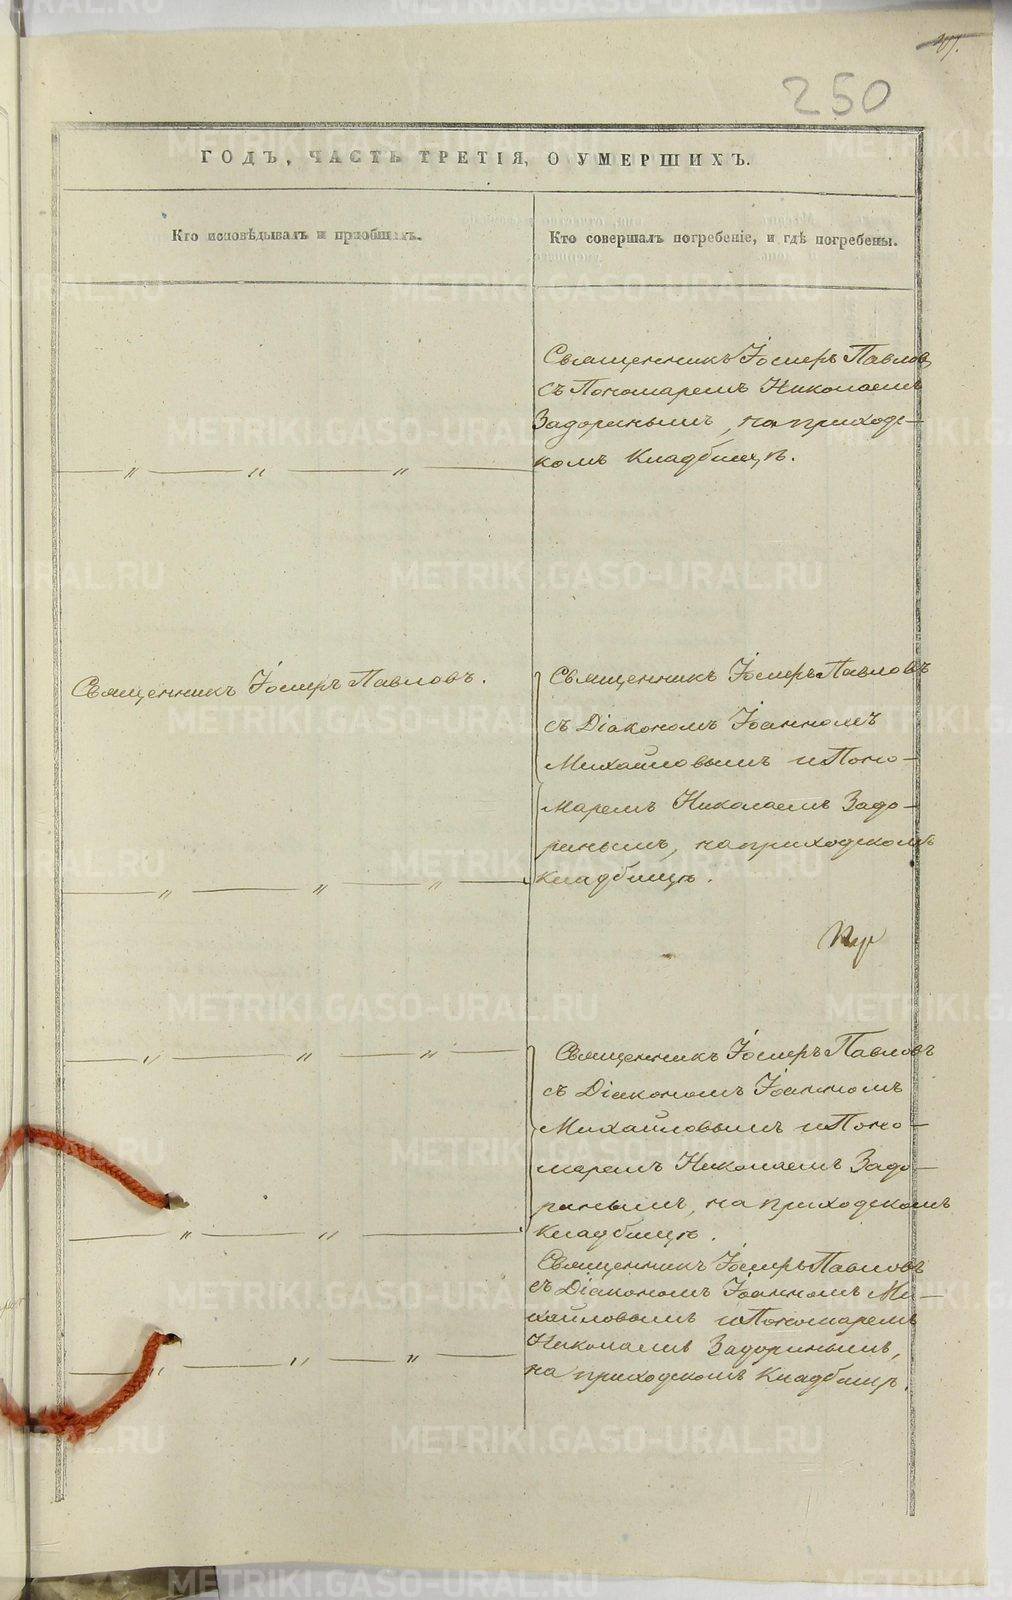 250
ГОДЪ, ЧАСТЬ ТРЕТІЯ, О УМЕРШИХЪ.
Кто исповѣдывалъ и пріобщалъ.
Кто совершалъ погребеніе, и гдѣ погребены.
Священникъ Іосифъ Павловъ
съ Пономаремъ Николаемъ
Задоринымъ, на приходс-
комъ Кладбищѣ.
— „ — „ — „ —
Священникъ Іосифъ Павловъ.
Священникъ Іосифъ Павловъ
съ Діакономъ Іоанномъ
Михайловымъ и Поно-
маремъ Николаемъ Задо-
ринымъ, на приходскомъ
Кладбищѣ.
— „ — „ — „ —
— „ — „ — „ —
Священникъ Іосифъ Павловъ
съ Діакономъ Іоанномъ
Михайловымъ и Поно-
маремъ Николаемъ Задо-
ринымъ, на приходскомъ
Кладбищѣ.
— „ — „ —
Священникъ Іосифъ Павловъ
съ Діакономъ Іоанномъ Ми-
хайловымъ и Пономаремъ
Николаемъ Задоринымъ,
на приходскомъ Кладбищѣ.
— „ — „ — „ —
METRIKI.GASO-URAL.RU